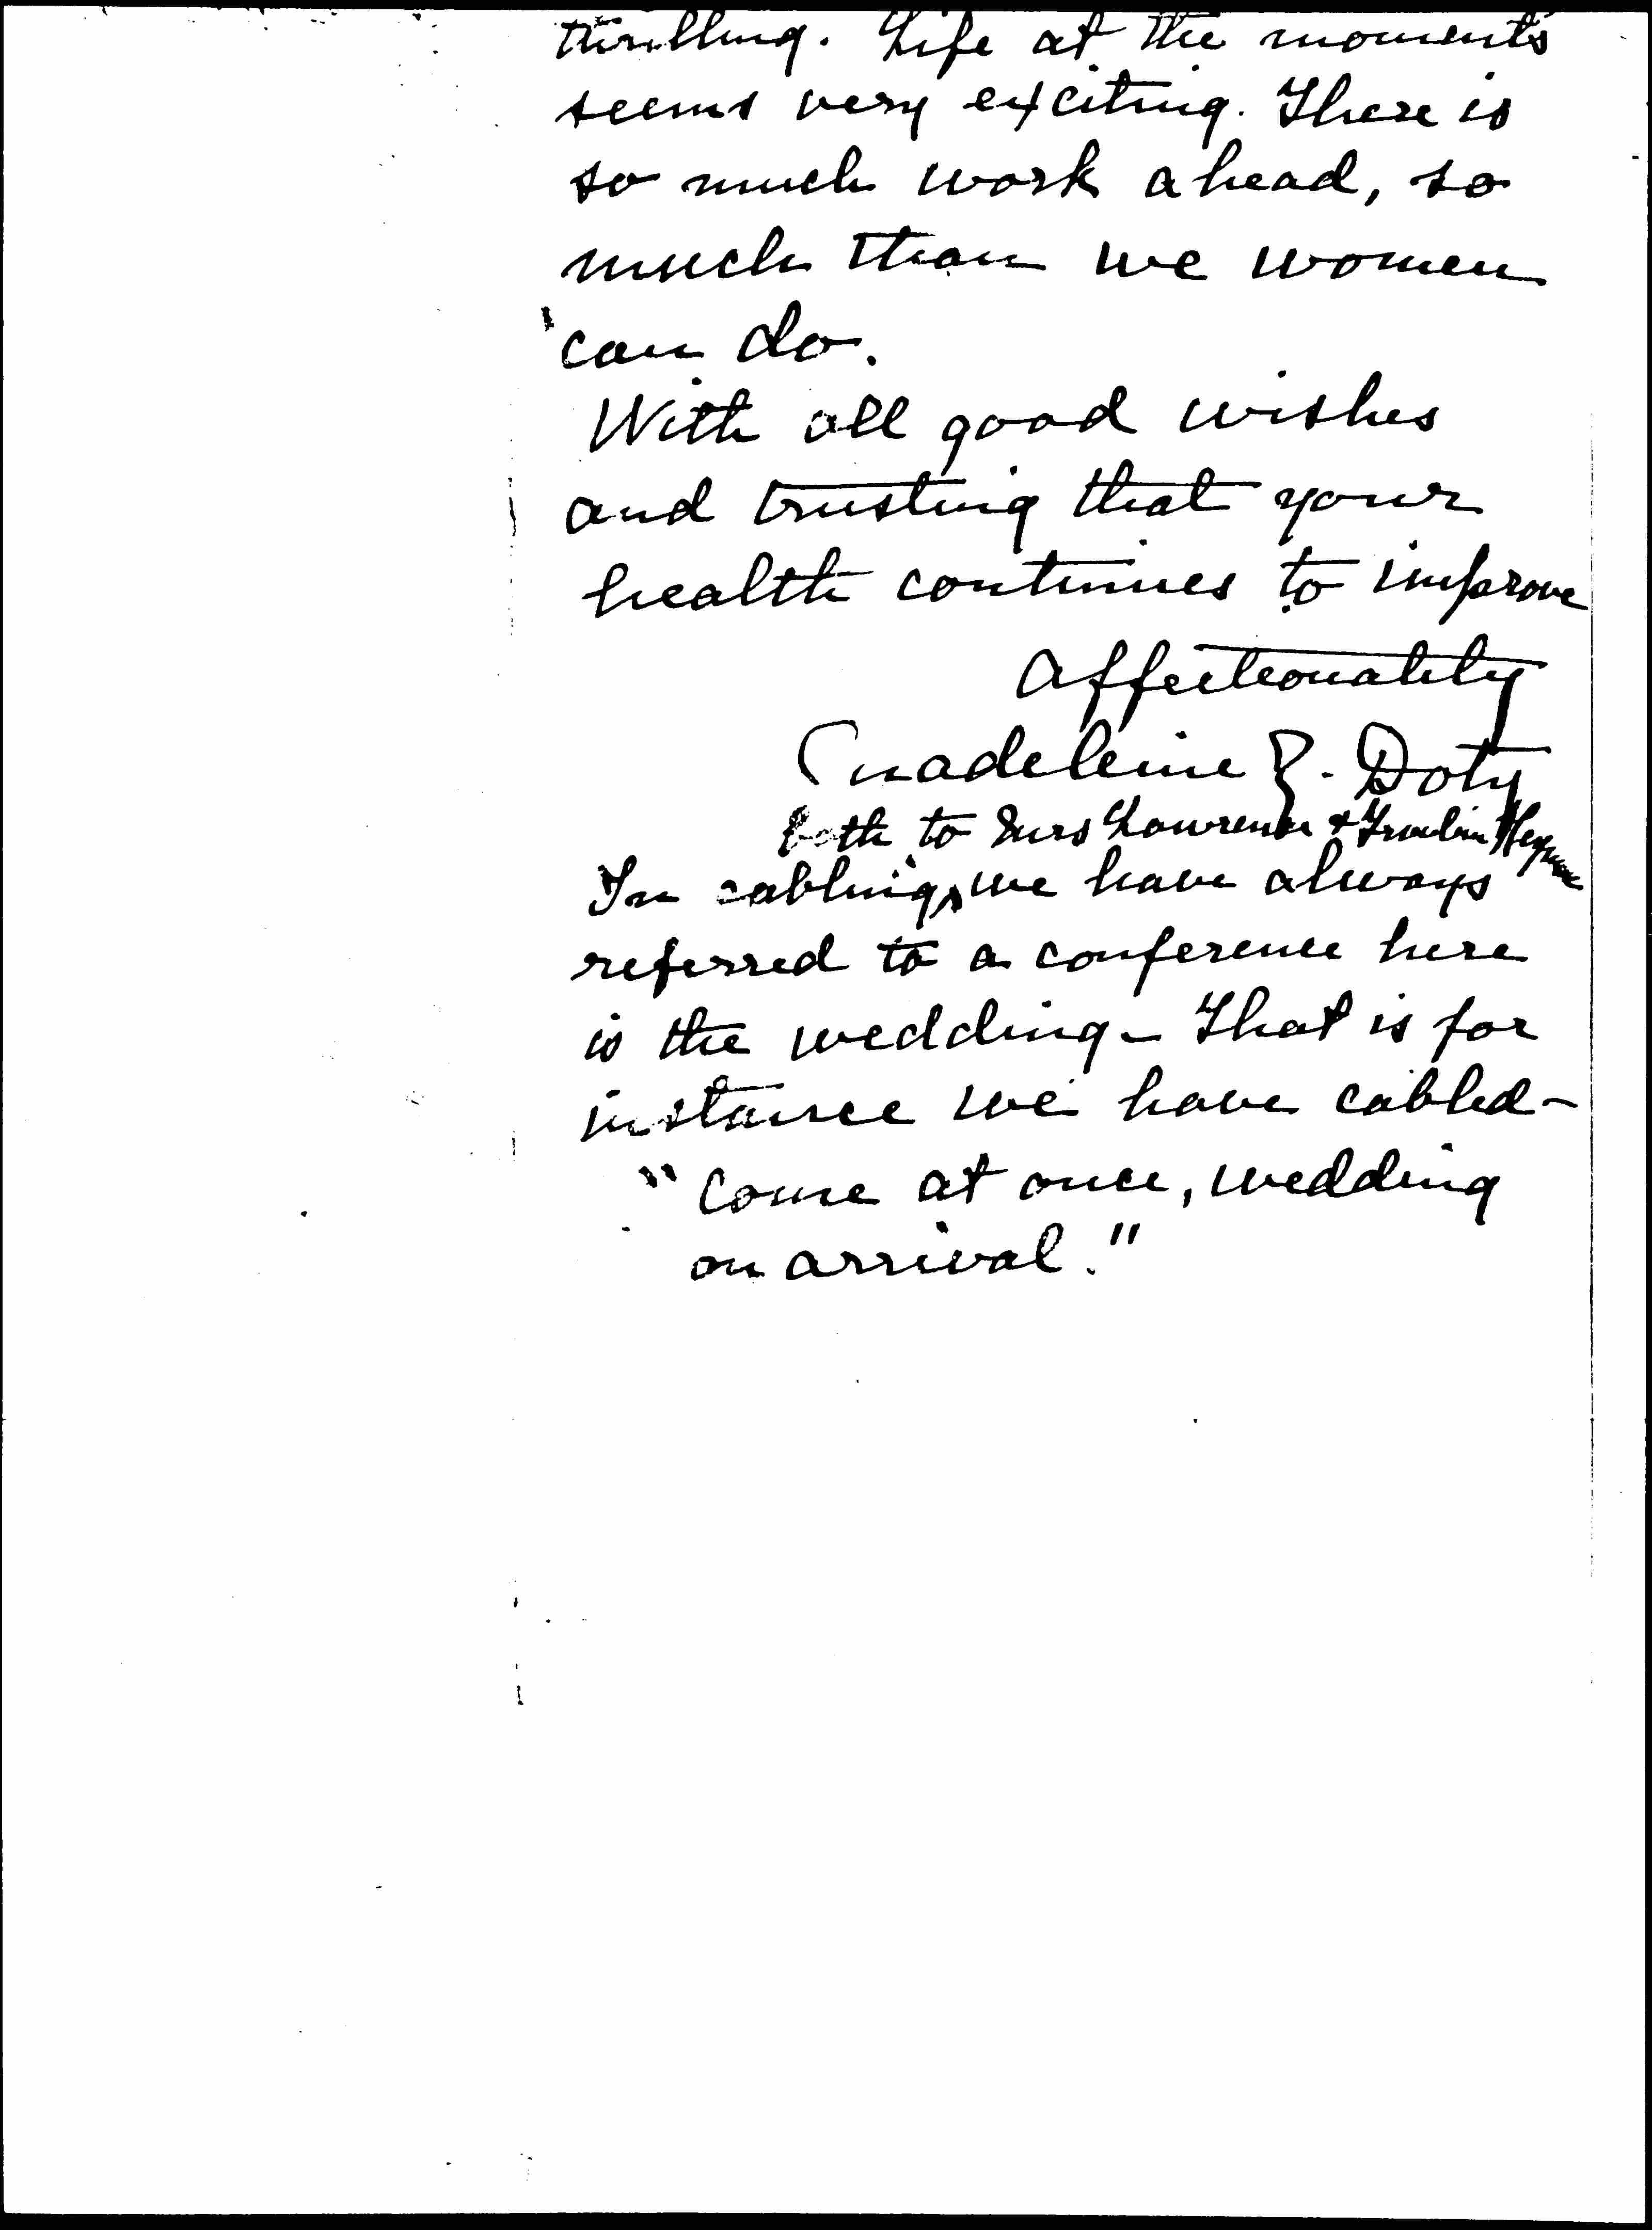 thrilling. Life at the moments
seems very exciting. There is
so much work ahead, so
much than we women
can do.
With all good wishes
and trusting that your
health continues to improve
Affectionately
Madeleine Z. Doty
both to Mrs Lawrence + Fraulein
In cabling, we have always
referred to a conference here
is the wedding - That is for
instance we have cabled -
"Come at once, wedding
on arrival."